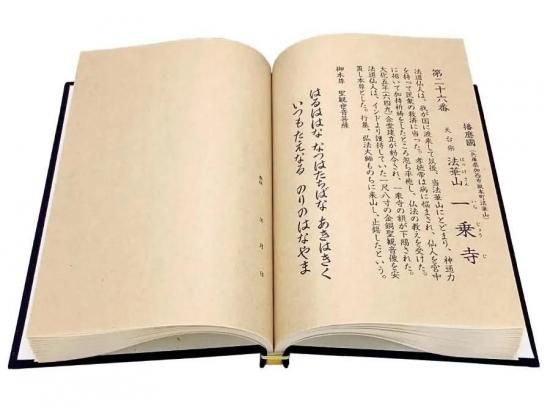 第二十六番
播磨國（兵庫県加西市坂本町法華山）
天台宗 法華山 一乗寺
ほっけさん いちじょうじ
法道仙人は、我が国に渡来して以後、当法華山にとどまり、神通力
を持って民衆の救済に当った。孝徳帝は病に悩まされ、仙人を宮中
に招いて加持祈祷をしたところ忽ち平癒し、仏法の教えを受けた。
大化五年（六四九）金堂建立が勅令され、一乗寺の額が下賜された。
法道仙人は、インドより護持していた一尺八寸の金銅聖観音像を安
置し本尊とした。行基、弘法大師ものちに来山し、正錫したという。
御本尊 聖観世音菩薩
はるははな なつはたちばな あきはきく
いつもたえなる のりのはなやま
年 月 日